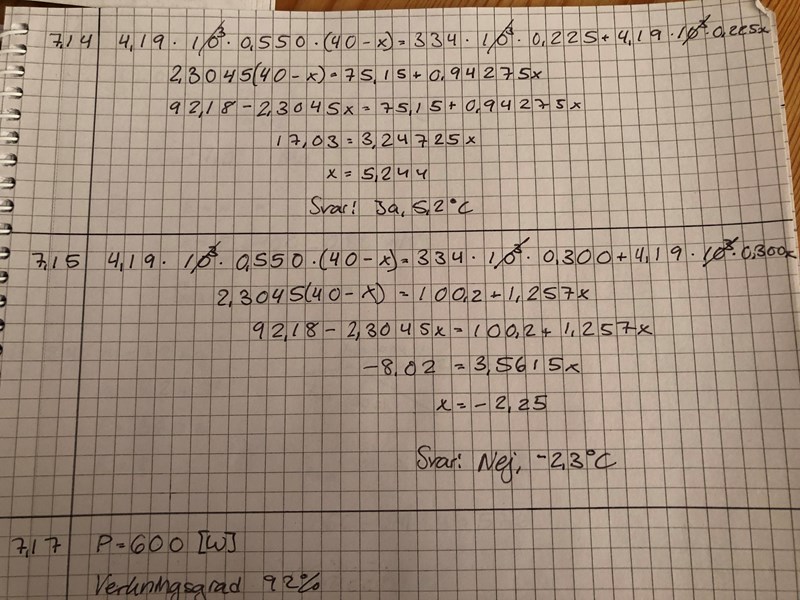 7.14 4,19 · 10³ · 0,550 · (40 - x) = 334 · 10³ · 0,225 + 4,19 · 10³ · 0,225x
2,3045(40 - x) = 75,15 + 0,94275x
92,18 - 2,3045x = 75,15 + 0,94275x
17,03 = 3,24725x
x = 5,244
Svar: Ja, 5,2°C
7.15 4,19 · 10³ · 0,550 · (40 - x) = 334 · 10³ · 0,300 + 4,19 · 10³ · 0,300x
2,3045(40 - x) = 100,2 + 1,257x
92,18 - 2,3045x = 100,2 + 1,257x
-8,02 = 3,5615x
x = -2,25
Svar: Nej, -2,3°C
7.17 P = 600 [W]
Verkningsgrad 92%